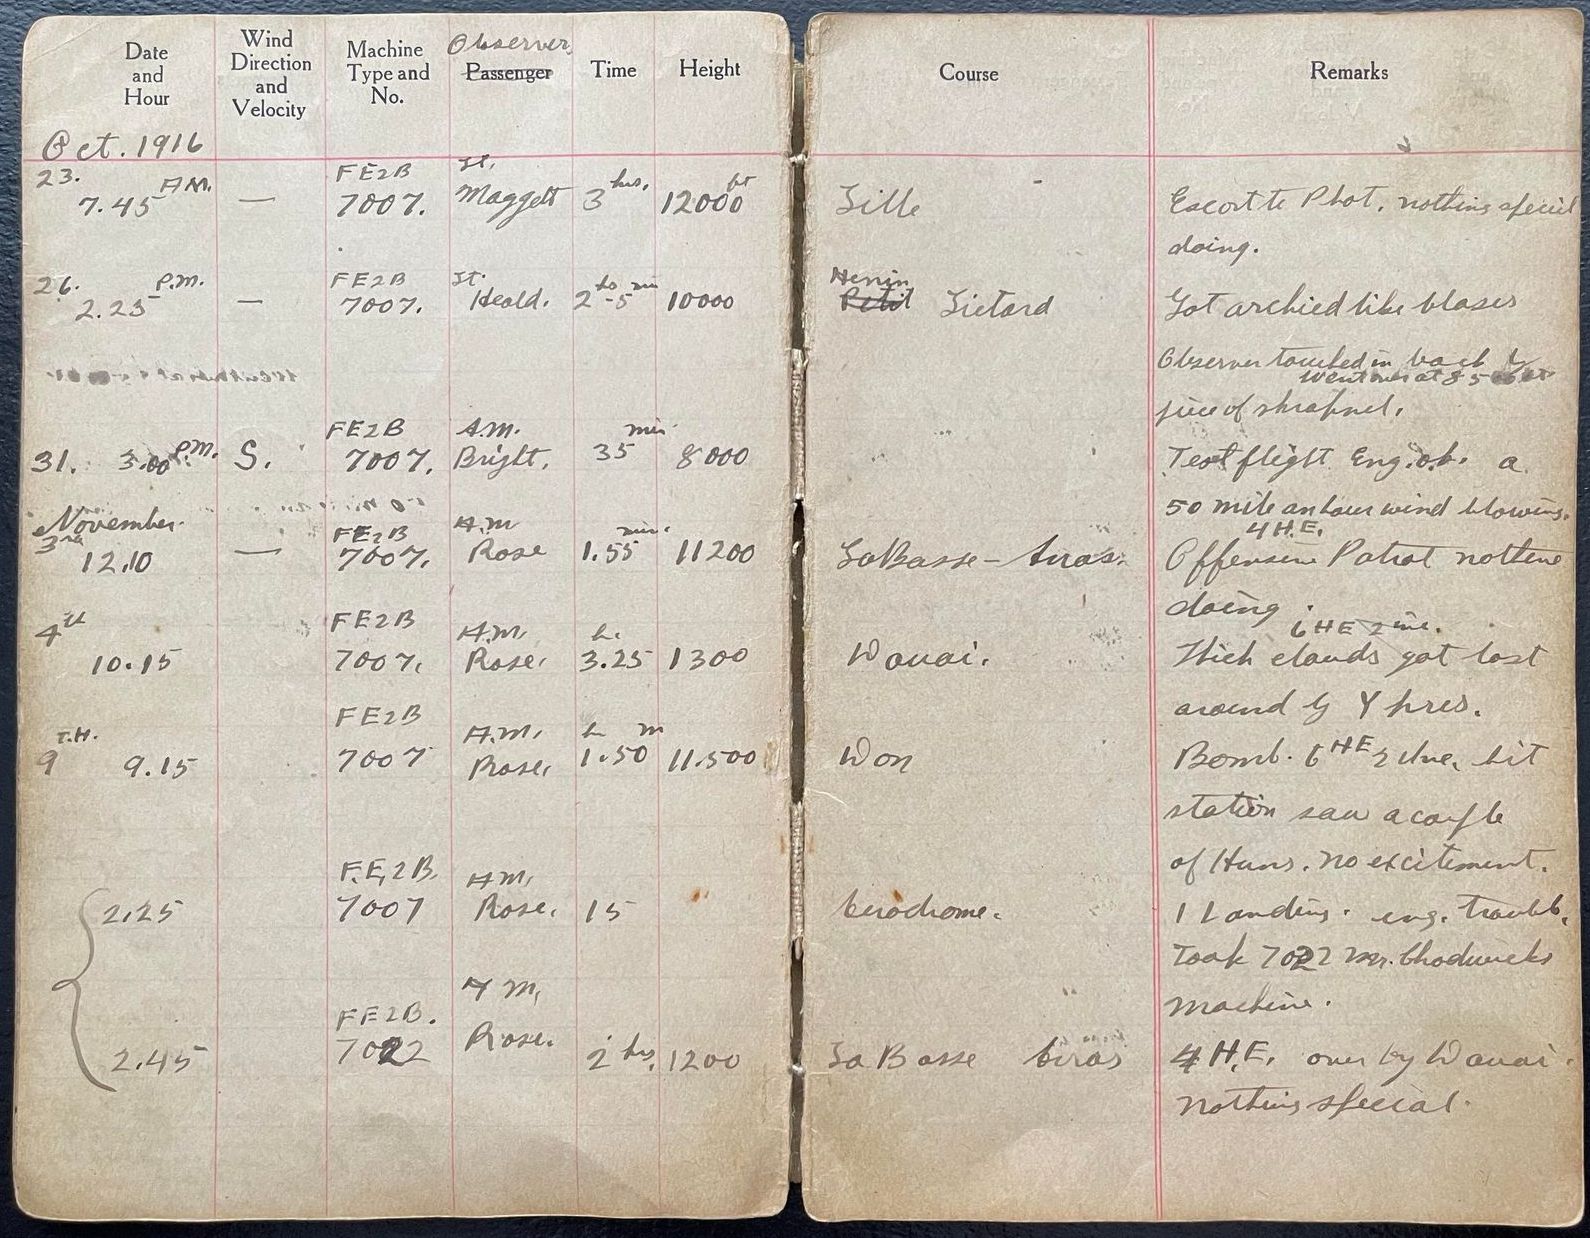 Date and Hour
Wind Direction and Velocity
Machine Type and No.
Observer
Passenger
Time
Height
Course
Remarks
Oct. 1916
23. 7.45 A.M. — FE2B 7007. Lt. Maggett 3 hrs. 12000 ft Lille Escort to Phot. nothing special
doing.
26. 2.25 P.M. — FE2B 7007. Lt. Heald. 2-5 10000 Henin Petit Lietard Got archied like blazes
Observer touched in back by
went over at 85
piece of shrapnel.
31. 3.00 P.M. S. FE2B 7007. A.M. Bright. 35 min. 8000 Test flight Eng. o.k. a
50 mile an hour wind blowing.
November
3rd 12.10 — FE2B 7007. A.M. Rose 1.55 min. 11200 La Basse - Arras. 4 H.E. Offensive Patrol nothing
doing.
4th 10.15 FE2B 7007. A.M. Rose. 3.25 h. 1300 Douai. 6 HE 2 inc. Thick clouds got lost
around by Ypres.
9 T.H. 9.15 FE2B 7007 A.M. Rose. 1.50 h m 11.500 Don Bomb. 6 HE 2 inc. hit
station saw a couple
of Huns. No excitement.
2.25 F.E.2B. 7007 A.M. Rose. 15 Aerodrome. 1 Landing. eng. trouble.
Took 7022 Mr. Chadwicks
machine.
2.45 FE2B. 7022 A.M. Rose. 2 hrs. 1200 La Basse Arras 4 H.E. over by Douai.
nothing special.